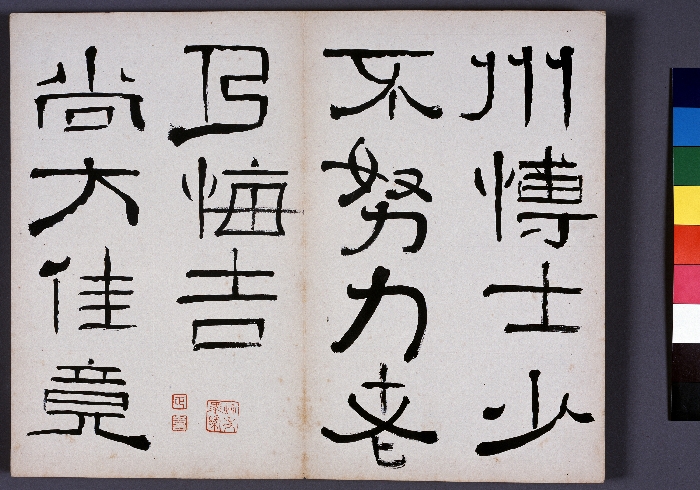 州愽士少
不努力老
乃悔吉
尚方佳竟